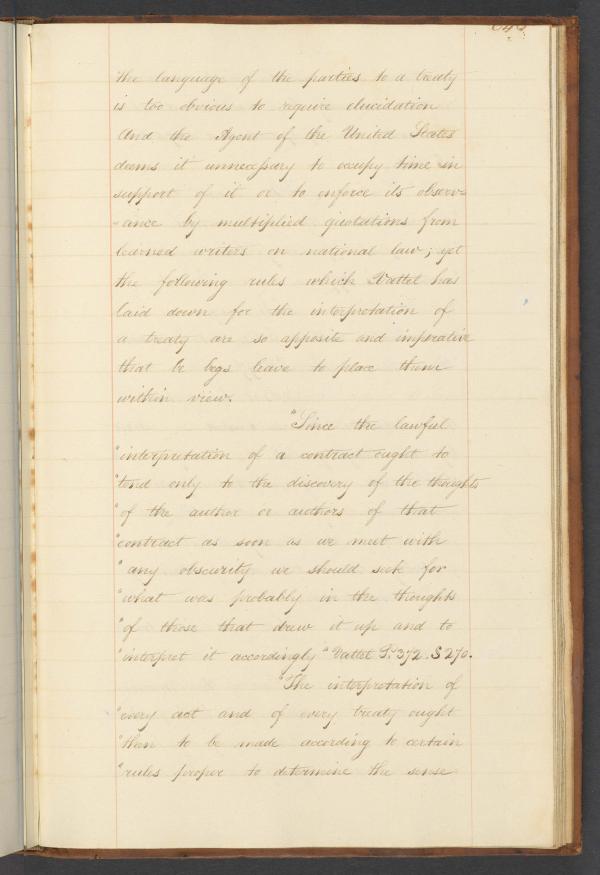 the language of the parties to a treaty
is too obvious to require elucidation
And the Agent of the United States
deems it unnecessary to occupy time in
support of it or to enforce its observ=
=ance by multiplied quotations from
learned writers on national law; yet
the following rules which Vattel has
laid down for the interpretation of
a treaty are so apposite and imperative
that he begs leave to place them
within view.
"Since the lawful
"interpretation of a contract ought to
"tend only to the discovery of the thoughts
"of the author or authors of that
"contract as soon as we meet with
"any obscurity we should seek for
"what was probably in the thoughts
"of those that drew it up and to
"interpret it accordingly" Vattel P. 372. S 270.
"The interpretation of
"every act and of every treaty ought
"then to be made according to certain
"rules proper to determine the sense